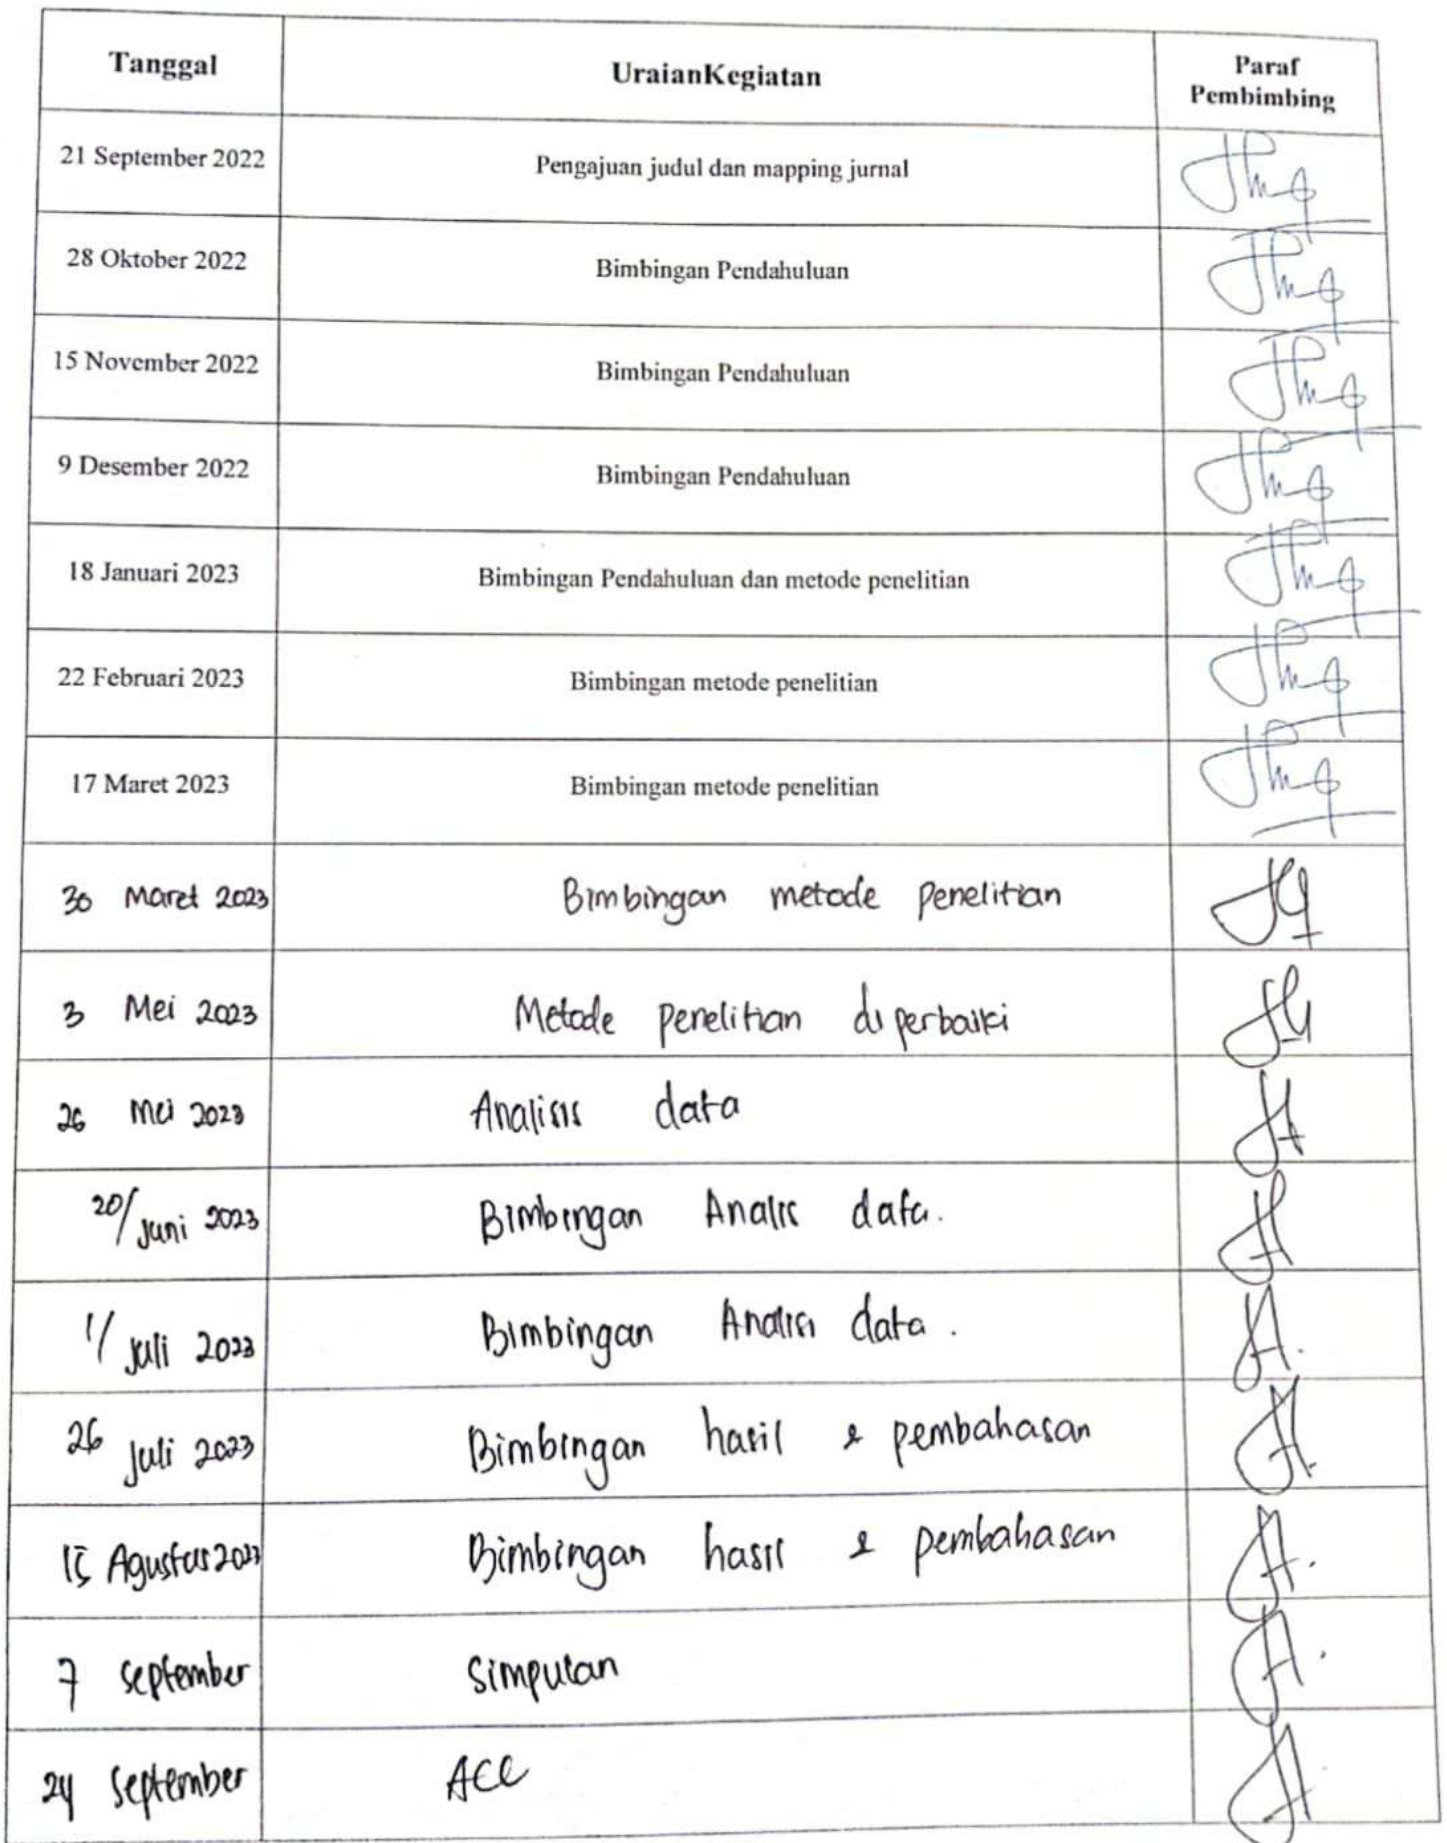 Tanggal UraianKegiatan Paraf
Pembimbing
21 September 2022 Pengajuan judul dan mapping jurnal
28 Oktober 2022 Bimbingan Pendahuluan
15 November 2022 Bimbingan Pendahuluan
9 Desember 2022 Bimbingan Pendahuluan
18 Januari 2023 Bimbingan Pendahuluan dan metode penelitian
22 Februari 2023 Bimbingan metode penelitian
17 Maret 2023 Bimbingan metode penelitian
30 Maret 2023 Bimbingan metode penelitian
3 Mei 2023 Metode penelitian diperbaiki
26 Mei 2023 Analisis data
20/ Juni 2023 Bimbingan Analis data.
1/ Juli 2023 Bimbingan Analisi data.
26 Juli 2023 Bimbingan hasil & pembahasan
15 Agustus 2023 Bimbingan hasil & pembahasan
7 September Simpulan
24 September ACC